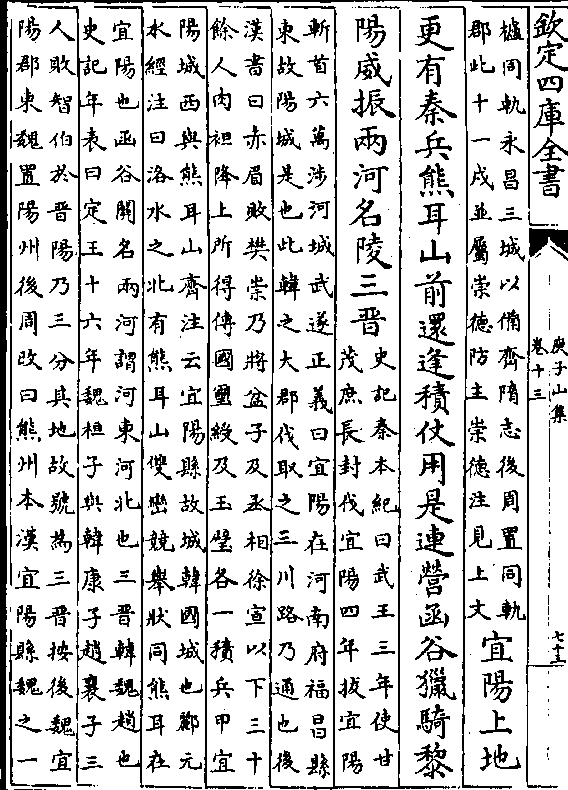 欽定四庫全書
庾子山集
卷十三
七十五
櫨同軌永昌三城以備齊隋志後周置同軌
郡此十一戍並屬崇德防主崇德注見上文
宜陽上地
更有秦兵熊耳山前還逢積仗用是連營函谷獵騎黎
陽威振兩河名陵三晉
史記秦本紀曰武王三年使甘
茂庶長封伐宜陽四年拔宜陽
斬首六萬涉河城武遂正義曰宜陽在河南府福昌縣
東故陽城是也此韓之大郡伐取之三川路乃通也後
漢書曰赤眉敗樊崇乃將盆子及丞相徐宣以下三十
餘人肉袒降上所得傳國璽綬及玉璧各一積兵甲宜
陽城西與熊耳山齊注云宜陽縣故城韓國城也酈元
水經注曰洛水之北有熊耳山雙巒競舉狀同熊耳在
宜陽也函谷關名兩河謂河東河北也三晉韓魏趙也
史記年表曰定王十六年魏桓子與韓康子趙襄子三
人敗智伯於晉陽乃三分其地故號為三晉按後魏宜
陽郡東魏置陽州後周改曰熊州本漢宜陽縣魏之一